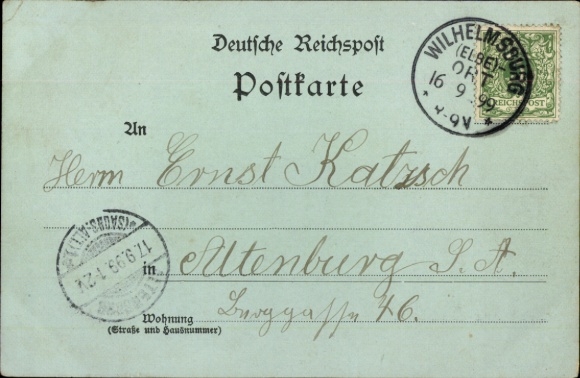 Deutsche Reichspost
Postkarte
WILHELMSBURG
(ELBE)
ORT
16 9 99
8-9V
REICHSPOST
An
Herrn Ernst Katzsch
in Altenburg S. A.
17.9.99 1-2V
Burggasse 46.
Wohnung
(Straße und Hausnummer)